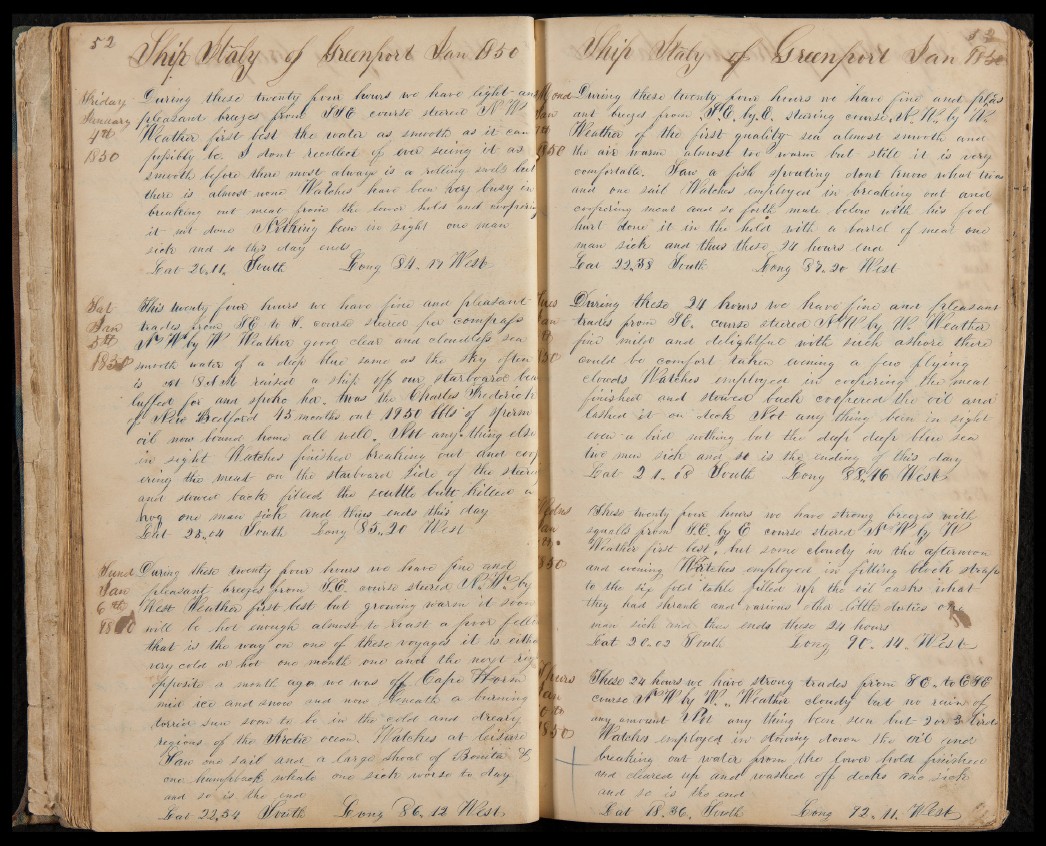 52
Ship Italy of Greenport Jan 1850
Friday January 4th 1850
During these twenty four hours we have light and
pleasant breezes from S.E. course steered N.W.
Weather first best the water as smooth as it can
possibly be. I dont recollect of ever seeing it as
smooth before there most always is a rolling swell but
there is almost none Watches have been very busy in
breaking out meat from the lower hold and coopering
it not done Nothing been in sight one man
sick and so this day ends
Lat 26,,11, South Long 84,,17 West
Sat Jan 5th 1850
This twenty four hours we have fine and pleasant
trades from S.E. to S. course steered per compass
N.W. by W. Weather good clear and cloudless sea
smooth water of a deep blue same as the sky often
is at raised a ship off our starboard
luffed for and spoke her. twas the Charles Frederick
of New Bedford 43 months out 1950 bbls of sperm
oil now bound home all well. Not any thing else
in sight Watches finished breaking out and coop
ering the meat on the starboard side of the
and stowed back filled the scuttle butt killed a
hog one man sick and thus ends this day
Lat 23,,04 South Long 85,,20 West
Sund Jan 6th 1850
During these twenty four hours we have fine and
pleasant breezes from S.E. course steered N.W. by
West Weather first best but growing warm it soon
will be hot enough almost to roast a poor fellow
that is the way on one of these voyages it is either
very cold or hot one month one and the next
opposite a month ago we was off Cape Horn
mid ice and snow and now beneath a burning
torrid sun soon to be in the cold and dreary
regions of the Arctic ocean. Watches at leisure
Saw one sail and a large shoal of Bonita &
one humpback whale one sick worse to day
and so is the end
Lat 22,,54 South Long 86,,12 West
52
Ship Italy of Greenport Jan 1850
Mond Jan 7th 1850
During these twenty four hours we have fine and pleas
ant breezes from S.E. by E. steering course N.W. by W.
Weather of the first quality sea almost smooth and
the air warm almost too warm but still it is very
comfortable. Saw a fish spouting dont know what twas
and one sail Watches employed in breaking out and
coopering meat and so forth mate below with his foot
hurt done it in the hold with a barrel of meat one
man sick and thus these 24 hours end
Lat 22,,38 South Long 87,,20 West
Tues Jan
During these 24 hours we have fine and pleasant
trades from S.E. course steered N.W. by W. Weather
fine mild and delightful with such ashore there
could be comfort taken evening a few flying
clouds Watches employed in coopering the meat
finished and stowed back coopered the oil and
lashed it on deck Not any thing been in sight
even a bird nothing but the deep deep blue sea
two men sick and so is the ending of this day
Lat 21,,08 South Long 88,,46 West
Wednes Jan
These twenty four hours we have strong breezes with
squalls from S.E. by E course steered N.W. by W
Weather first best, but some cloudy in the afternoon
and evening Watches employed in fitting block straps
to the six fold tackle filled up the oil casks what
they had shrunk and various other little duties one
man sick and thus ends these 24 hours
Lat 20,,02 South Long 90,,14, West
Thurs Jan
These 24 hours we have strong trades from S.E. to E.S.E.
course N.W. by W. Weather cloudy but no rain of
any amount Not any thing been seen but 2 or 3 birds
Watches employed in stowing down the oil and
breaking out water from the lower hold finished
and cleared up and washed off decks one sick
and so is the end
Lat 18,,36, South Long 92,,11, West